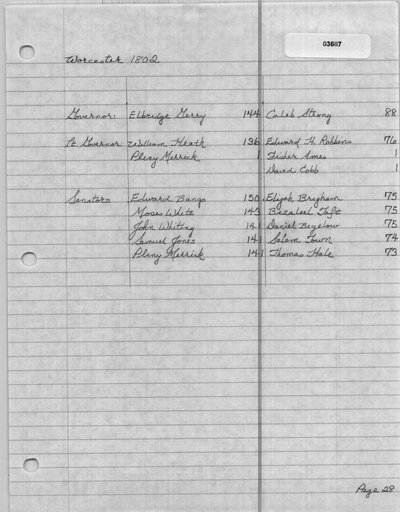 03687
Worcester 1802
Governor: Elbridge Gerry 144 Caleb Strong 88
Lt. Governor William Heath 136 Edward H. Robbins 76
Pliny Merrick 1 Fisher Ames 1
David Cobb 1
Senators Edward Bangs 150 Elijah Brigham 75
Moses White 143 Bezaleel Taft 75
John Whiting 141 Daniel Bigelow 75
Samuel Jones 141 Salem Town 74
Pliny Merrick 141 Thomas Hale 73
Page 28